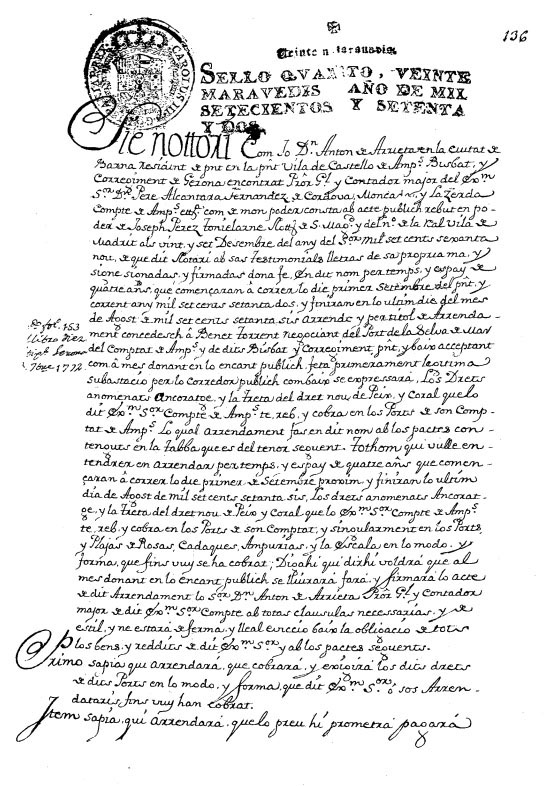 136
Veinte maravedis.
SELLO QVARTO, VEINTE
MARAVEDIS AÑO DE MIL
SETECIENTOS Y SETENTA
Y DOS
CAROLUS III
Sie nottori Com Jo Dn. Anton de Arrieta en la ciutat de
Barna Residint de pnt en la pnt Vila de Castello de Amps. Bisbat, y
Corregiment de Gerona encontrat Pror. Gl. y Contador major del Exm.
Sor. Dn. Pere Alcantara Fernandez de Cordova, Moncada, y La Zerda
Compte de Amps. ettc. com de mon poder consta ab acte publich rebut en po-
der de Joseph Perez Nott. de S. Mag. y del no. de la Ral Vila de
Madrit als vint, y set Desembre del any del Sor. mil set cents sexanta
nou, de que dit Notari ab sas testimonials lletras de sa propria ma, y
signe signadas, y firmadas dona fe, En dit nom per temps, y espay de
quatre añs, que començaran á correr lo die primer Setembre del pnt, y
corrent any mil set cents setanta dos, y finiran en lo ultim die del mes
de Agost de mil set cents setanta sis arrende, y per titol de Arrenda-
ment concedesch á Benet Torrent negociant del Port de la Selva de Mar
del Comptat de Amps. y de dits Bisbat, y Corregiment, pnt, y baix acceptant
com á mes donant en lo encant publich, feta primerament llegitima
subastacio per lo corredor publich com baix se expressará, Los Drets
anomenats Ancoratge, y la treta del dret nou de Peix, y Coral que lo
dit Exm. Sor. Compte de Amps. te, reb, y cobra en los Ports de son Comp-
tat de Amps. Lo qual arrendament fas en dit nom ab los pactes con-
tenguts en la Tabba que es del tenor seguent. Tothom qui vulle en-
tendrer en arrendar per temps, y espay de quatre añs que comen-
çaran á correr lo die primer de Setembre proxim, y finiran lo ultim
dia de Agost de mil set cents setanta sis, los drets anomenats Ancorat-
ge, y la treta del dret nou de Peix, y Coral que lo Exm. Sor. Compte de Amps.
te, reb, y cobra en los Ports de son Comptat, y singularment en los Ports,
y Plajas de Rosas, Cadaques, Ampurias, y la Escala en lo modo, y
forma, que fins vuy se ha cobrat; Diga hi qui dir hi voldrá que al
mes donant en lo encant publich se lliurará fará, y firmará lo acte
de dit Arrendament lo Sor. Dn. Anton de Arrieta Pror. Gl. y Contador
major de dit Exm. Sor. Compte ab totas clausulas necessarias, y de
estil, y ne estará de ferma, y lleal eviccio baix la obligacio de tots
los bens, y reddits de dit Exm. Sor. y ab los pactes seguents.
Primo sapia qui Arrendará, que cobrará, y exigirá los dits drets
de dits Ports en lo modo, y forma, que dit Exm. Sor. ó sos Arren-
dataris fins vuy han cobrat.
Item sapia, qui Arrendará, que lo preu hi prometrá pagará
fol. 153
llibro diez
7bre 1772